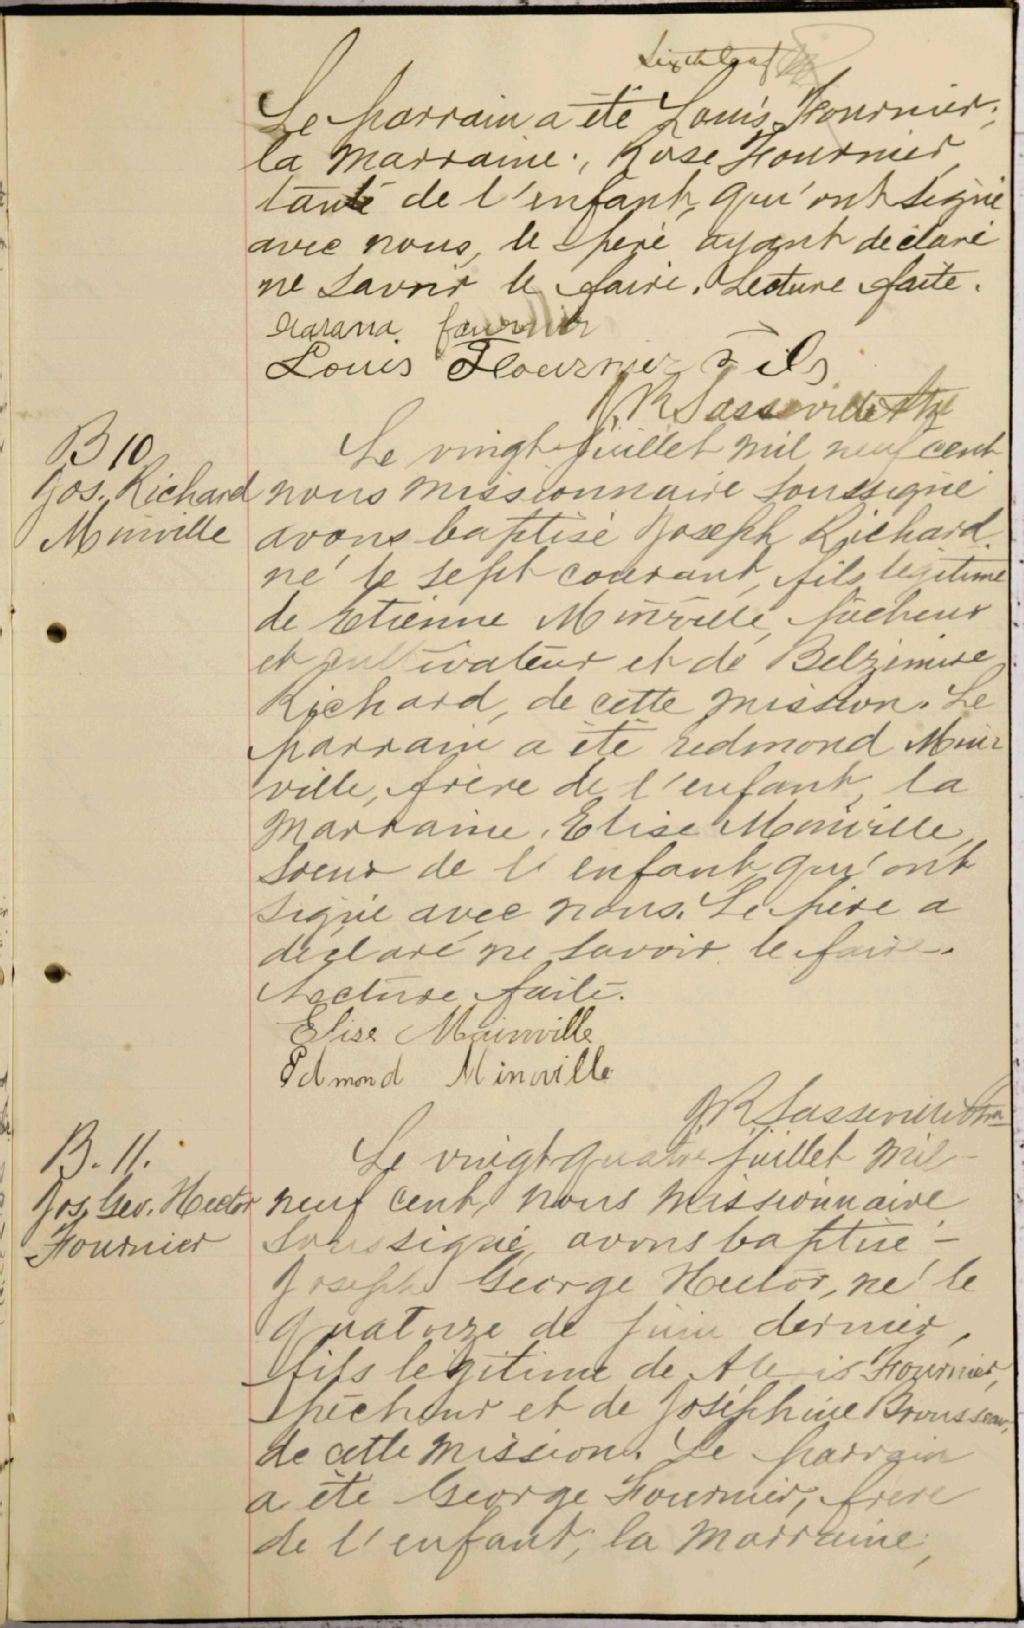 Sixth leaf
Le parrain a été Louis Fournier;
la marraine, Rose Fournier
tante de l'enfant, qui ont signé
avec nous, le père ayant déclaré
ne savoir le faire. Lecture faite.
fournier
Louis Fournier Fils
J.R. Sasseville Ptre
B 10
Jos. Richard
Minville
Le vingt juillet mil neuf cent
nous missionnaire soussigné
avons baptisé Joseph Richard
né le sept courant, fils légitime
de Etienne Minville, pêcheur
et cultivateur et de Belzimire
Richard, de cette mission. Le
parrain a été Edmond Min
ville, frère de l'enfant, la
marraine, Elise Minville,
soeur de l'enfant qui ont
signé avec nous. Le père a
déclaré ne savoir le faire.
Lecture faite.
Elise Mainville
Edmond Minville
J R Sasseville Ptre
B. 11.
Jos. Geo. Hector
Fournier
Le vingt quatre juillet mil
neuf cent, nous missionnaire
soussigné, avons baptisé
Joseph George Hector, né le
quatorze de juin dernier,
fils légitime de Alexis Fournier,
pêcheur et de Joséphine Brousseau,
de cette mission. Le parrain
a été George Fournier, frère
de l'enfant; la marraine,